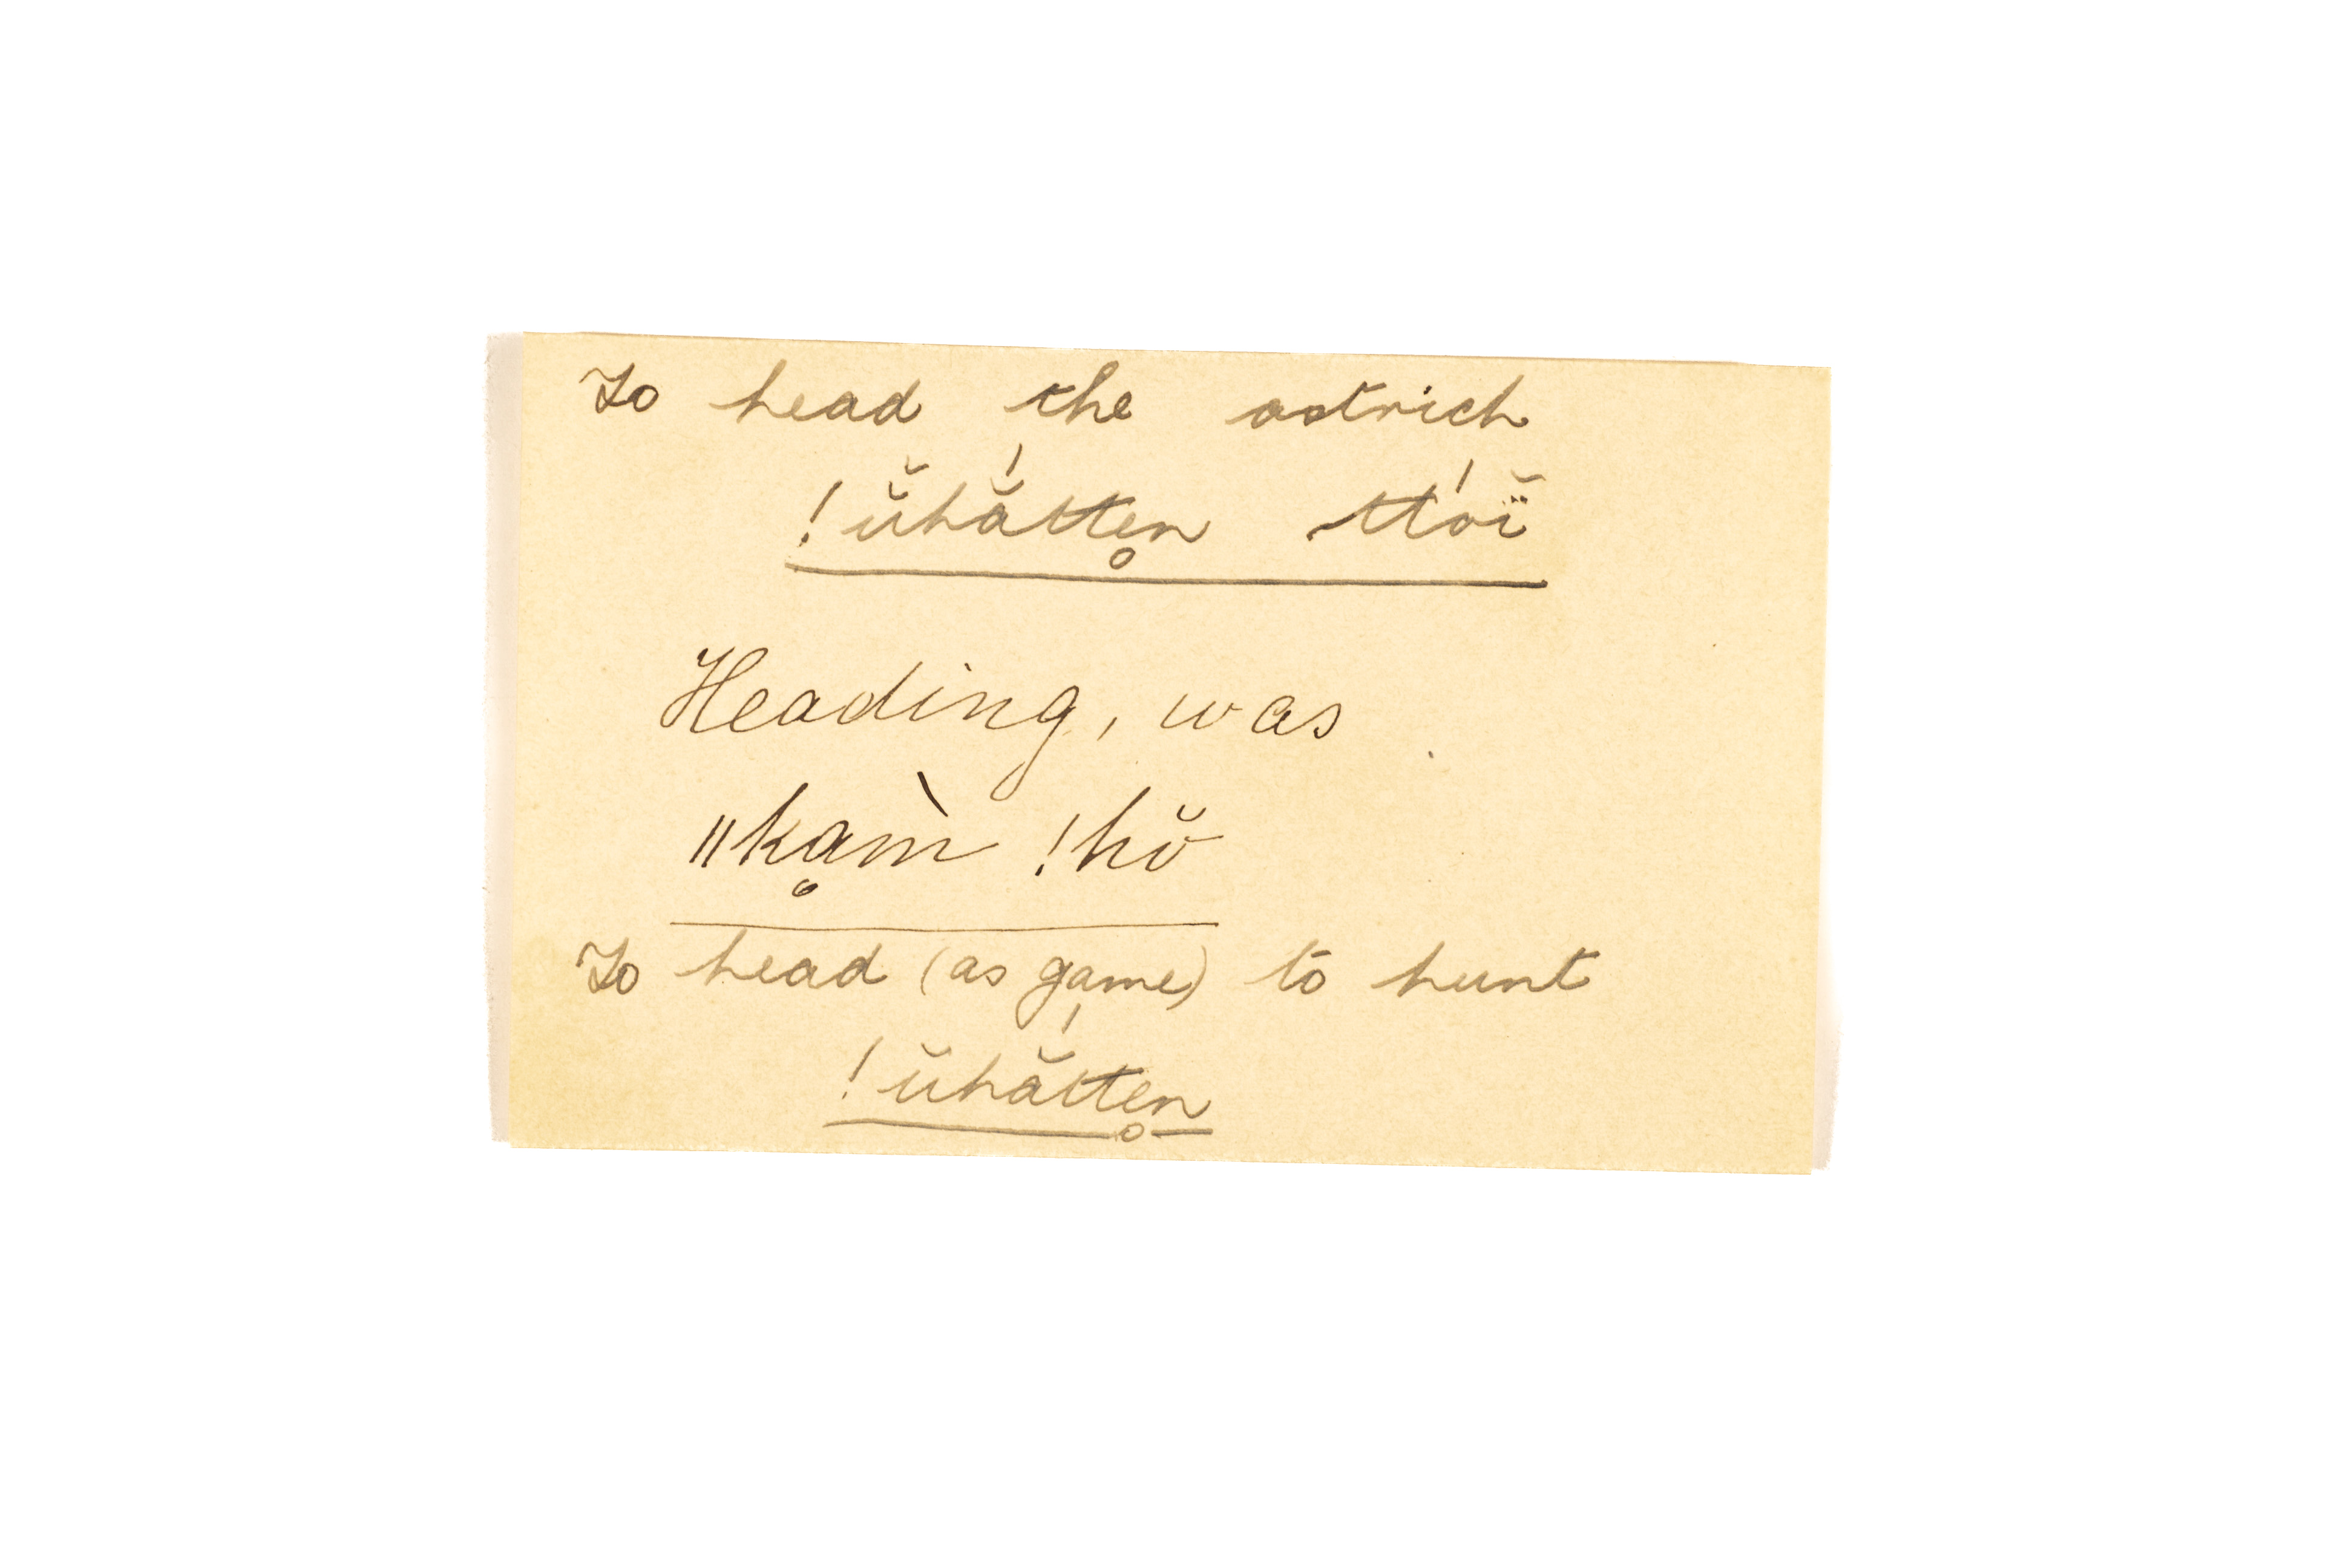 To head the ostrich
!ŭhắtten̥ ttóï̆
Heading, was
ǁkḁm̀ !hŏ
To head (as game) to hunt
!ŭhắtten̥